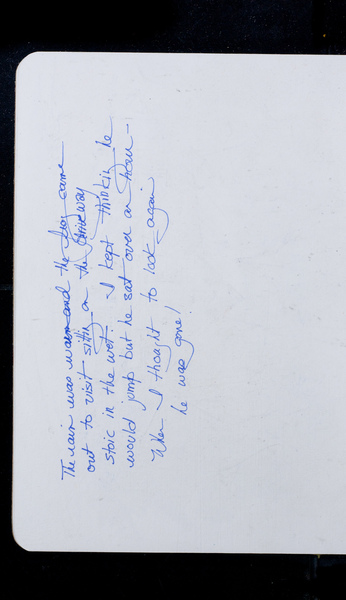 The rain was warm and the frog came
out to visit sitting on the driveway
stoic in the wet. I kept thinking he
would jump but he sat over an hour –
When I thought to look again
he was gone!